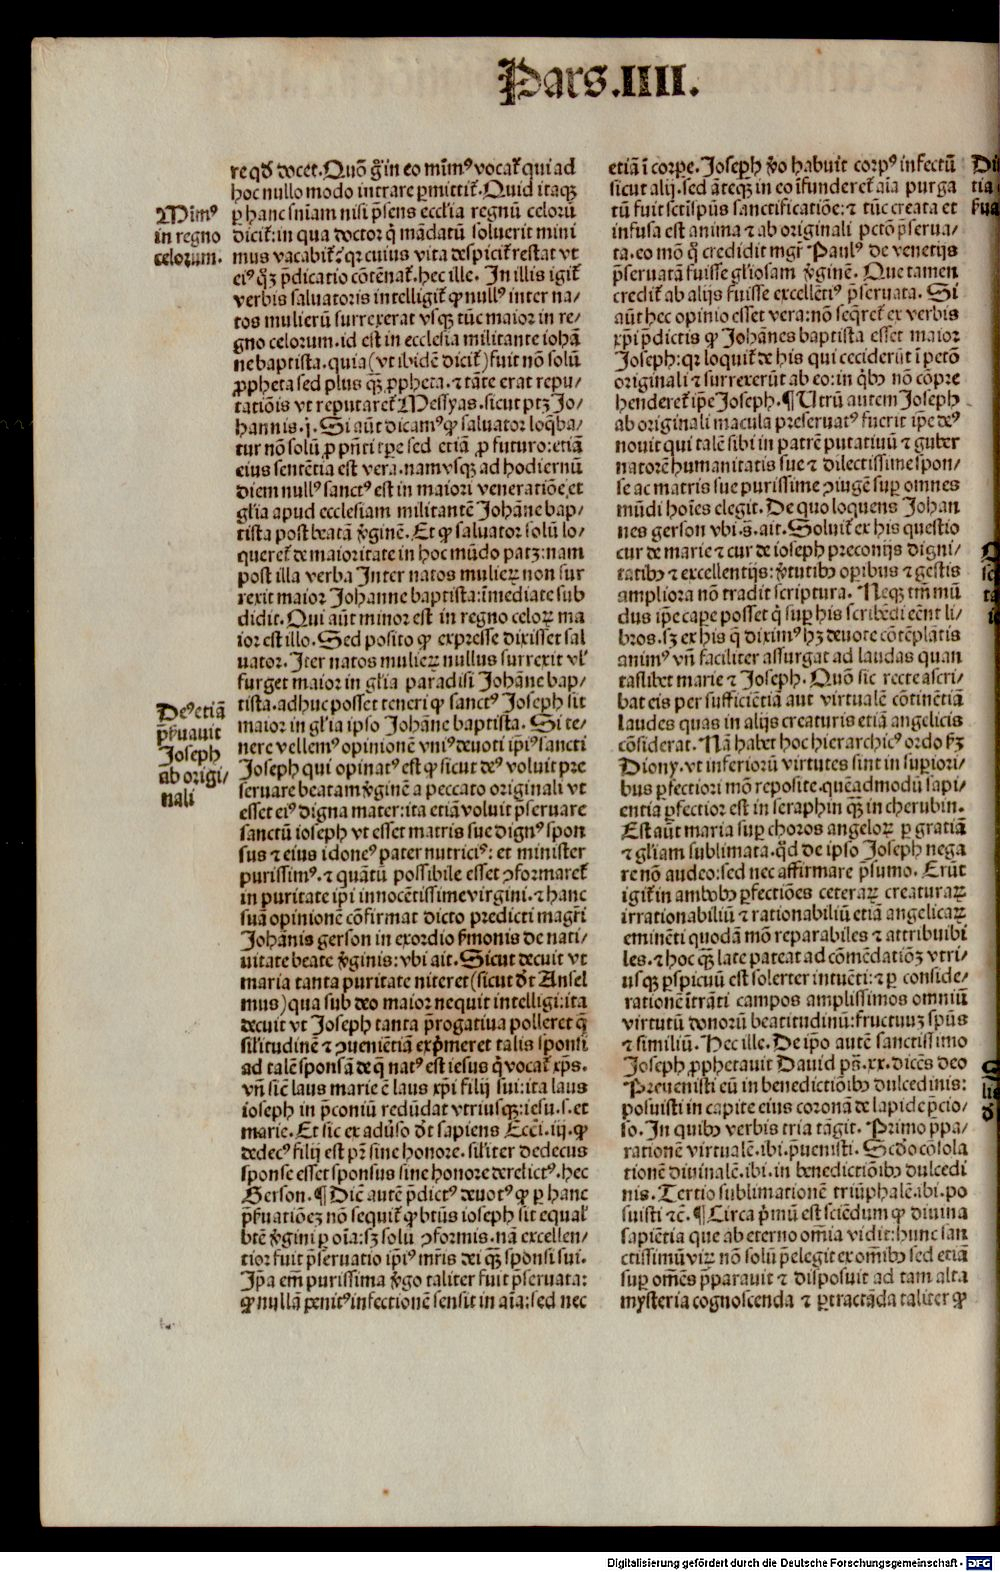 Pars.IIII.
re qđ docet. Quō g̃ in eo mīmꝰ vocat᷑ qui ad
hoc nullo modo intrare ꝑmittit᷑. Quid itaqꝫ
ꝑ hanc sniam nisi p̄sens ecclia regnū celorū
dicit᷑: in qua doctor q̇ mādatū soluerit mini
mus vocabit᷑: qr cuius vita despicit᷑ restat vt
eiꝰ qꝫ p̄dicatio cōtēnat᷑. hec ille. In illis igit᷑
verbis saluatoris intelligit᷑ ꝙ nullꝰ inter na⸗
tos mulierū surrexerat vsqꝫ tūc maior in re⸗
gno celorum. id est in ecclesia militante iohā
ne baptista. quia (vt ibidē dicit᷑) fuit nō solū
ꝓpheta sed plus qꝫ̄ ꝓpheta. ⁊ tāte erat repu⸗
tatiōis vt reputaret᷑ Messyas. sicut ptꝫ Jo⸗
hannis. j. Si aūt dicamꝰ ꝙ saluator loq̄ba⸗
tur nō solū ꝓ pn̄ti tꝑe sed etiā ꝓ futuro: etiā
eius sentētia est vera. nam vsqꝫ ad hodiernū
diem nullꝰ sanctꝰ est in maiori veneratiōe et
glia apud ecclesiam militantē Johāne bap⸗
tista post beatā v̄ginē. Et ꝙ saluator solū lo⸗
queret᷑ de maioritate in hoc mūdo patꝫ: nam
post illa verba Inter natos mulieꝝ non sur
rexit maior Johanne baptista: īmediate sub
didit. Qui aūt minor est in regno celoꝝ ma
ior est illo. Sed posito ꝙ expresse dixisset sal
uator. Iter natos mulieꝝ nullus surrexit vl᷑
surget maior in glia paradisi Johāne bap⸗
tista. adhuc posset teneri ꝙ sanctꝰ Joseph sit
maior in glia ipso Johāne baptista. Si te⸗
nere vellemꝰ opinionē vniꝰ deuoti ip̄iꝰ sancti
Joseph qui opinatꝰ est ꝙ sicut deꝰ voluit pre
seruare beatam v̄ginē a peccato originali vt
esset eiꝰ digna mater: ita etiā voluit p̄seruare
sanctū ioseph vt esset matris sue dignꝰ spon
sus ⁊ eius idoneꝰ pater nutriciꝰ: et minister
purissimꝰ. ⁊ quātū possibile esset ꝯformaret᷑
in puritate ip̄i innocētissime virgini. ⁊ hanc
suā opinionē cōfirmat dicto predicti magr̄i
Johānis gerson in exordio s̄monis de nati⸗
uitate beate v̄ginis: vbi ait. Sicut decuit vt
maria tanta puritate niteret (sicut dt̄ Ansel
mus) qua sub deo maior nequit intelligi: ita
decuit vt Joseph tanta p̄rogatiua polleret q̄
silitudinē ⁊ ꝯueniētiā exp̄meret talis sponsi
ad talē sponsā de q̄ natꝰ est iesus q̇ vocat᷑ xp̄s.
vn̄ sic̄ laus marie ē laus xp̄i filij sui: ita laus
ioseph in p̄coniū redūdat vtriusqꝫ: iesu. s. et
marie. Et sic ex adūso dt̄ sapiens Ecci. iij. ꝙ
dedecꝰ filij est pr̄ sine honore. siliter dedecus
sponse esset sponsus sine honore derelictꝰ. hec
Gerson. ¶ Dic̄ autē p̄dictꝰ deuotꝰ ꝙ ꝑ hanc
p̄s̄uatiōeꝫ nō sequit᷑ ꝙ btūs ioseph sit equal᷑
btē v̄gini ꝑ oīa: sꝫ solū ꝯformis. nā excellen⸗
tior fuit p̄seruatio ip̄iꝰ mr̄is dei qꝫ̄ sponsi sui.
Jp̄a em̄ purissima v̄go taliter fuit p̄seruata:
ꝙ nullā penitꝰ infectionē sensit in aīa: sed nec
Mīmꝰ
in regno
celorum.
Deꝰ etiā
p̄s̄uauit
Joseph
ab origi⸗
nali
etiā ī corꝑe. Joseph v̄o habuit corpꝰ infectū
sicut alij. sed āteqꝫ in eo īfunderet᷑ aīa purga
tū fuit sctīspūs sanctificatiōe: ⁊ tūc creata et
infusa est anima ⁊ ab originali pctō p̄serua⸗
ta. eo mō q̄ credidit mgr̄ Paulꝰ de venetijs
p̄seruatā fuisse gl̄iosam v̄ginē. Que tamen
credit᷑ ab alijs fuisse excellētiꝰ p̄seruata. Si
aūt hec opinio esset vera: nō seq̄ret᷑ ex verbis
xp̄i p̄dictis ꝙ Johānes baptista esset maior
Joseph: qr loquit᷑ de his qui ceciderūt ī pctō
originali ⁊ surrexerūt ab eo: in q̇bꝰ nō cōpre
henderet᷑ ip̄e Joseph. ¶ Utrū autem Joseph
ab originali macula preseruatꝰ fuerit ip̄e deꝰ
nouit qui talē sibi in patrē putatiuū ⁊ guber
natorē humanitatis sue ⁊ dilectissime spon⸗
se ac matris sue purissime ꝯiugē suꝑ omnes
mūdi hoīes elegit. De quo loquens Johan
nes gerson vbi. s̄. ait. Soluit᷑ ex his questio
cur de marie ⁊ cur de ioseph preconijs digni⸗
tatibꝰ ⁊ excellentijs: v̄tutibꝰ oꝑibus ⁊ gestis
ampliora nō tradit scriptura. Neqꝫ tm̄ mū
dus ip̄e caꝑe posset q̄ suꝑ his scribēdi eēnt li⸗
bros. sꝫ ex his q̄ diximꝰ hꝫ deuote cōtēplātis
animꝰ vn̄ faciliter assurgat ad laudes quan
taslibet marie ⁊ Joseph. Quō sic recte ascri⸗
bat eis per sufficiētiā aut virtualē cōtinētiā
laudes quas in alijs creaturis etiā angelicis
cōsiderat. Nā habet hoc hierarchicꝰ ordo s̄ꝫ
Diony. vt inferiorū virtutes sint in suꝑiori⸗
bus ꝑfectiori mō reposite. quēadmodū sapi⸗
entia ꝑfectior est in seraphin qꝫ̄ in cherubin.
Est aūt maria suꝑ choros angeloꝝ ꝑ gratiā
⁊ gl̄iam sublimata. qd̄ de ipso Joseph nega
re nō audeo: sed nec affirmare p̄sumo. Erūt
igit᷑ in ambobꝰ ꝑfectiōes ceteraꝝ creaturaꝝ
irrationabiliū ⁊ rationabiliū etiā angelicaꝝ
eminēti quodā mō reparabiles ⁊ attribuibi
les. ⁊ hoc qꝫ̄ late pateat ad cōmēdatiōꝫ vtri⸗
usqꝫ ꝑspicuū est solerter intuēti: ⁊ ꝑ conside⸗
rationē ītrāti campos amplissimos omniū
virtutū donorū beatitudinū: fructuuꝫ spūs
⁊ similiū. Hec ille. De ip̄o autē sanctissimo
Joseph ꝓphetauit Dauid pṡ. xx. dicēs deo
Preuenisti eū in benedictiōibꝰ dulcedinis:
posuisti in capite eius coronā de lapide p̄cio⸗
so. In quibꝰ verbis tria tāgit. Primo p̄pa⸗
rationē virtualē. ibi. p̄uenisti. Scd̄o cōsola
tionē diuinalē. ibi. in benedictiōibꝰ dulcedi
nis. Tertio sublimationē triūphalē. ibi. po
suisti ⁊c̄. ¶ Circa p̄mū est sciēdum ꝙ diuina
sapiētia que ab eterno om̄ia vidit: hunc san
ctissimū viꝝ nō solū p̄elegit ex om̄ibꝰ sed etiā
suꝑ om̄es p̄parauit ⁊ disposuit ad tam alta
mysteria cognoscenda ⁊ ꝑtractāda taliter ꝙ
Digitalisierung gefördert durch die Deutsche Forschungsgemeinschaft - DFG